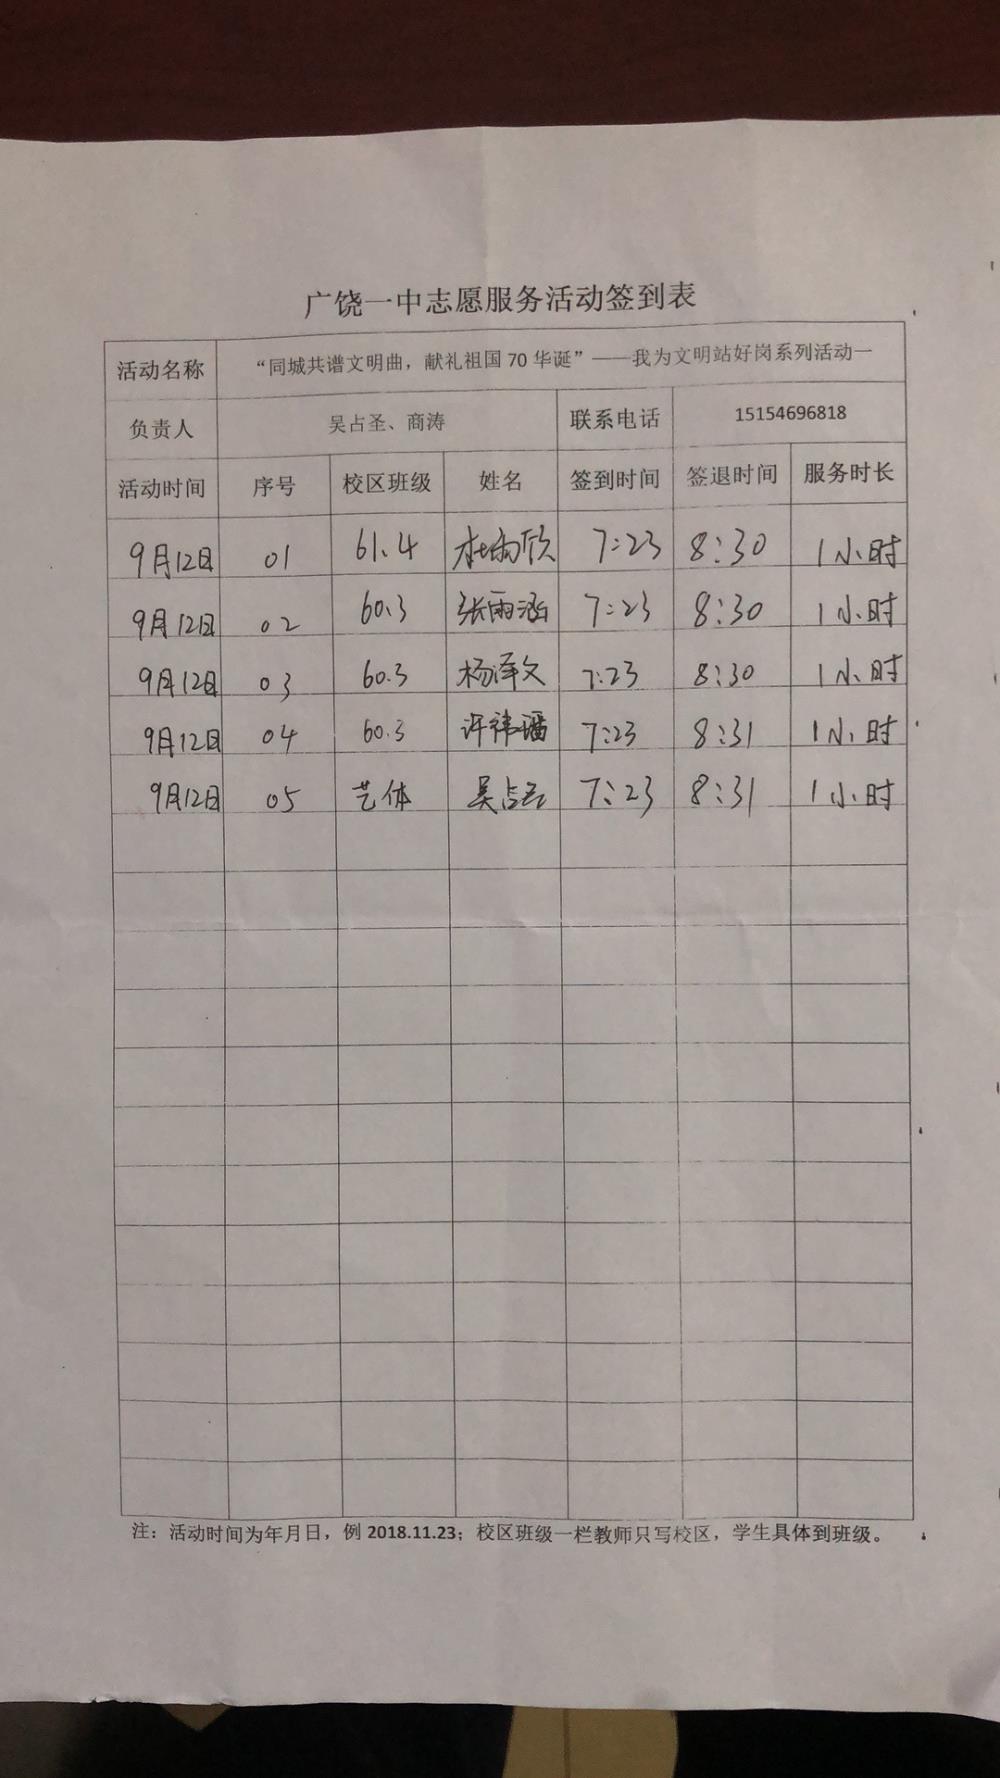 广饶一中志愿服务活动签到表
活动名称 “同城共谱文明曲，献礼祖国 70 华诞”——我为文明站好岗系列活动一
负责人 吴占圣、商涛 联系电话 15154696818
活动时间 序号 校区班级 姓名 签到时间 签退时间 服务时长
9月12日 01 61.4 杜雨欣 7:23 8:30 1小时
9月12日 02 60.3 张雨涵 7:23 8:30 1小时
9月12日 03 60.3 杨泽文 7:23 8:30 1小时
9月12日 04 60.3 许祎璠 7:23 8:31 1小时
9月12日 05 艺体 吴占圣 7:23 8:31 1小时
注：活动时间为年月日，例 2018.11.23；校区班级一栏教师只写校区，学生具体到班级。